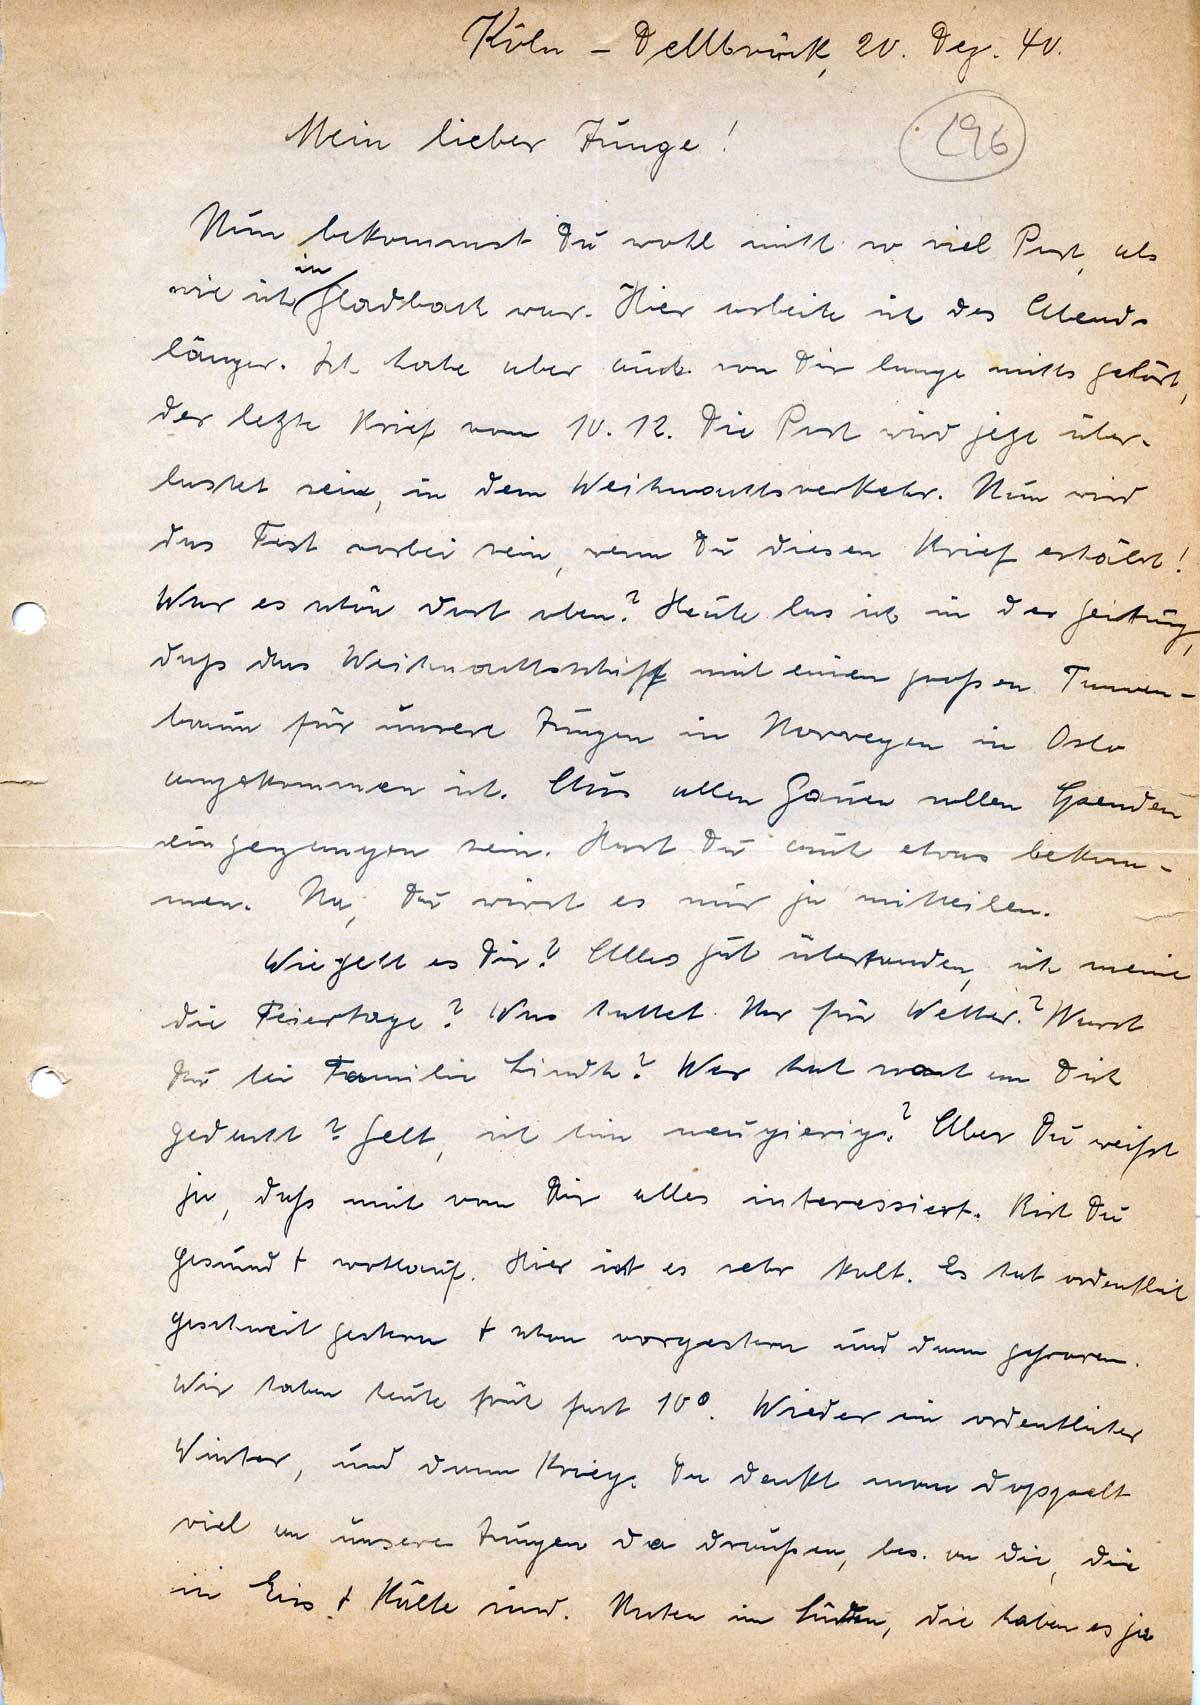 Köln – Dellbrück, 20. Dez. 40.
196
Mein lieber Junge!
Nun bekommst Du wohl nicht so viel Post, als
wie ich in Gladbach war. Hier arbeite ich des Abends
länger. Ich habe aber auch von Dir lange nichts gehört,
der letzte Brief vom 10.12. Die Post wird jetzt über-
lastet sein, in dem Weihnachtsverkehr. Nun wird
das Fest vorbei sein, wenn Du diesen Brief erhälst!
War es schön dort oben? Heute las ich in der Zeitung,
daß das Weihnachtsschiff mit einen großen Tannen-
baum für unsere Jungen in Norwegen in Oslo
angekommen ist. Aus allen Gauen sollen Spenden
eingegangen sein. Hast Du auch etwas bekom-
men. Na, Du wirst es mir ja mitteilen.
Wie geht es Dir? Alles gut überstanden, ich meine
die Feiertage? Was hattet Ihr für Wetter? Warst
Du bei Familie Lindh? Wer hat noch an Dich
gedacht? Gelt, ich bin neugierig? Aber Du weißt
ja, daß mich von Dir alles interessiert. Bist Du
gesund + wohlauf. Hier ist es sehr kalt. Es hat ordentlich
geschneit gestern + schon vorgestern und dann gefroren.
Wir haben heute früh fast 10°. Wieder ein ordentlicher
Winter, und dann Krieg. Da denkt man doppelt
viel an unsere Jungen da draußen, bes. an die, die
in Eis + Kälte sind. Unten im Süden, die haben es ja